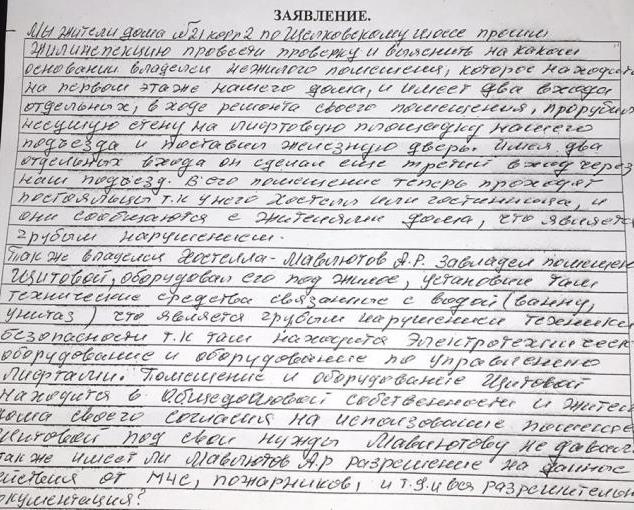 ЗАЯВЛЕНИЕ.
Мы жители дома №21 корп 2 по Щелковскому шоссе просим
Жилинспекцию провести проверку и выяснить на каком
основании владелец нежилого помещения, которое находит
на первом этаже нашего дома, и имеет два входа
отдельных, в ходе ремонта своего помещения, прорубил
несущую стену на лифтовую площадку нашего
подъезда и поставил железную дверь. Имея два
отдельных входа он сделал еще третий вход через
наш подъезд. В его помещение теперь проходят
постояльцы т.к у него хостел или гостиница, и
они сообщаются с жителями дома, что являетс
грубым нарушением.
Также владелец хостелла - Мавлютов А.Р. Завладел помещен
Щитовой, оборудовал его под жилое, установил там
технические средства связанные с водой (ванну,
унитаз) что является грубым нарушением техники
безопасности т.к там находится Электротехническ
оборудование и оборудование по управлению
лифтами. Помещение и оборудование Щитовой
находится в Общедомовой собственности и жители
дома своего согласия на использование помещен
Щитовой под свои нужды Мавлютову не давали
также имеет ли Мавлютов А.Р разрешение на данные
ействия от МЧС, пожарников, и т.д и вся разрешительн
окументация?